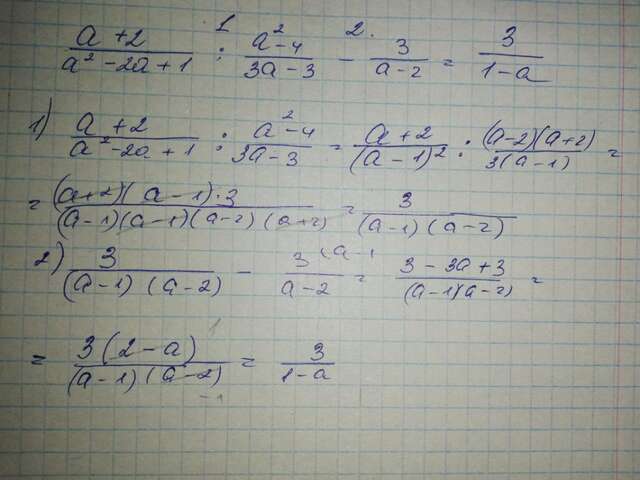 (a + 2)/(a² - 2a + 1) :¹ (a² - 4)/(3a - 3) -²· 3/(a - 2) = 3/(1 - a)
1) (a + 2)/(a² - 2a + 1) : (a² - 4)/(3a - 3) = (a + 2)/(a - 1)² : (a - 2)(a + 2)/3(a - 1) =
= (a + 2)(a - 1) · 3/(a - 1)(a - 1)(a - 2)(a + 2) = 3/(a - 1)(a - 2)
2) 3/(a - 1)(a - 2) - 3 (a - 1/(a - 2) = (3 - 3a + 3)/(a - 1)(a - 2) =
= 3(2 - a) 1/(a - 1)(a - 2) -1 = 3/(1 - a)